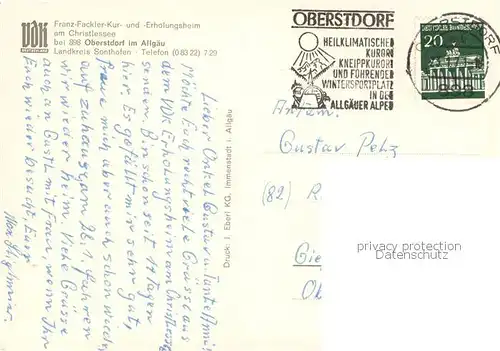 VdK
DEUTSCHLAND
Franz-Fackler-Kur- und -Erholungsheim
am Christlessee
bei 898 Oberstdorf im Allgäu
Landkreis Sonthofen · Telefon (0 83 22) 7 29
OBERSTDORF
HEILKLIMATISCHER
KURORT
KNEIPPKURORT
UND FÜHRENDER
WINTERSPORTPLATZ
IN DEN
ALLGÄUER ALPEN
OBERSTDORF
898
20
Lieber Onkel Gustav u. Tante Anni!
Möchte Euch recht viele Grüsse aus
dem VdK Erholungsheim am Christlessee
senden. Bin schon seit 17 Tagen
hier. Es gefällt mir sehr gut,
freue mich aber auch schon wieder
auf zuhause, am 28.1. fahren
wir wieder heim. Viele Grüsse
auch an Gustl mit Frau, wenn Ihr
Euch wieder besucht. Euer
Max
Druck: J. Eberl KG, Immenstadt i. Allgäu
Gustav Pelz
(82) R
Gie
privacy protection
Datenschutz